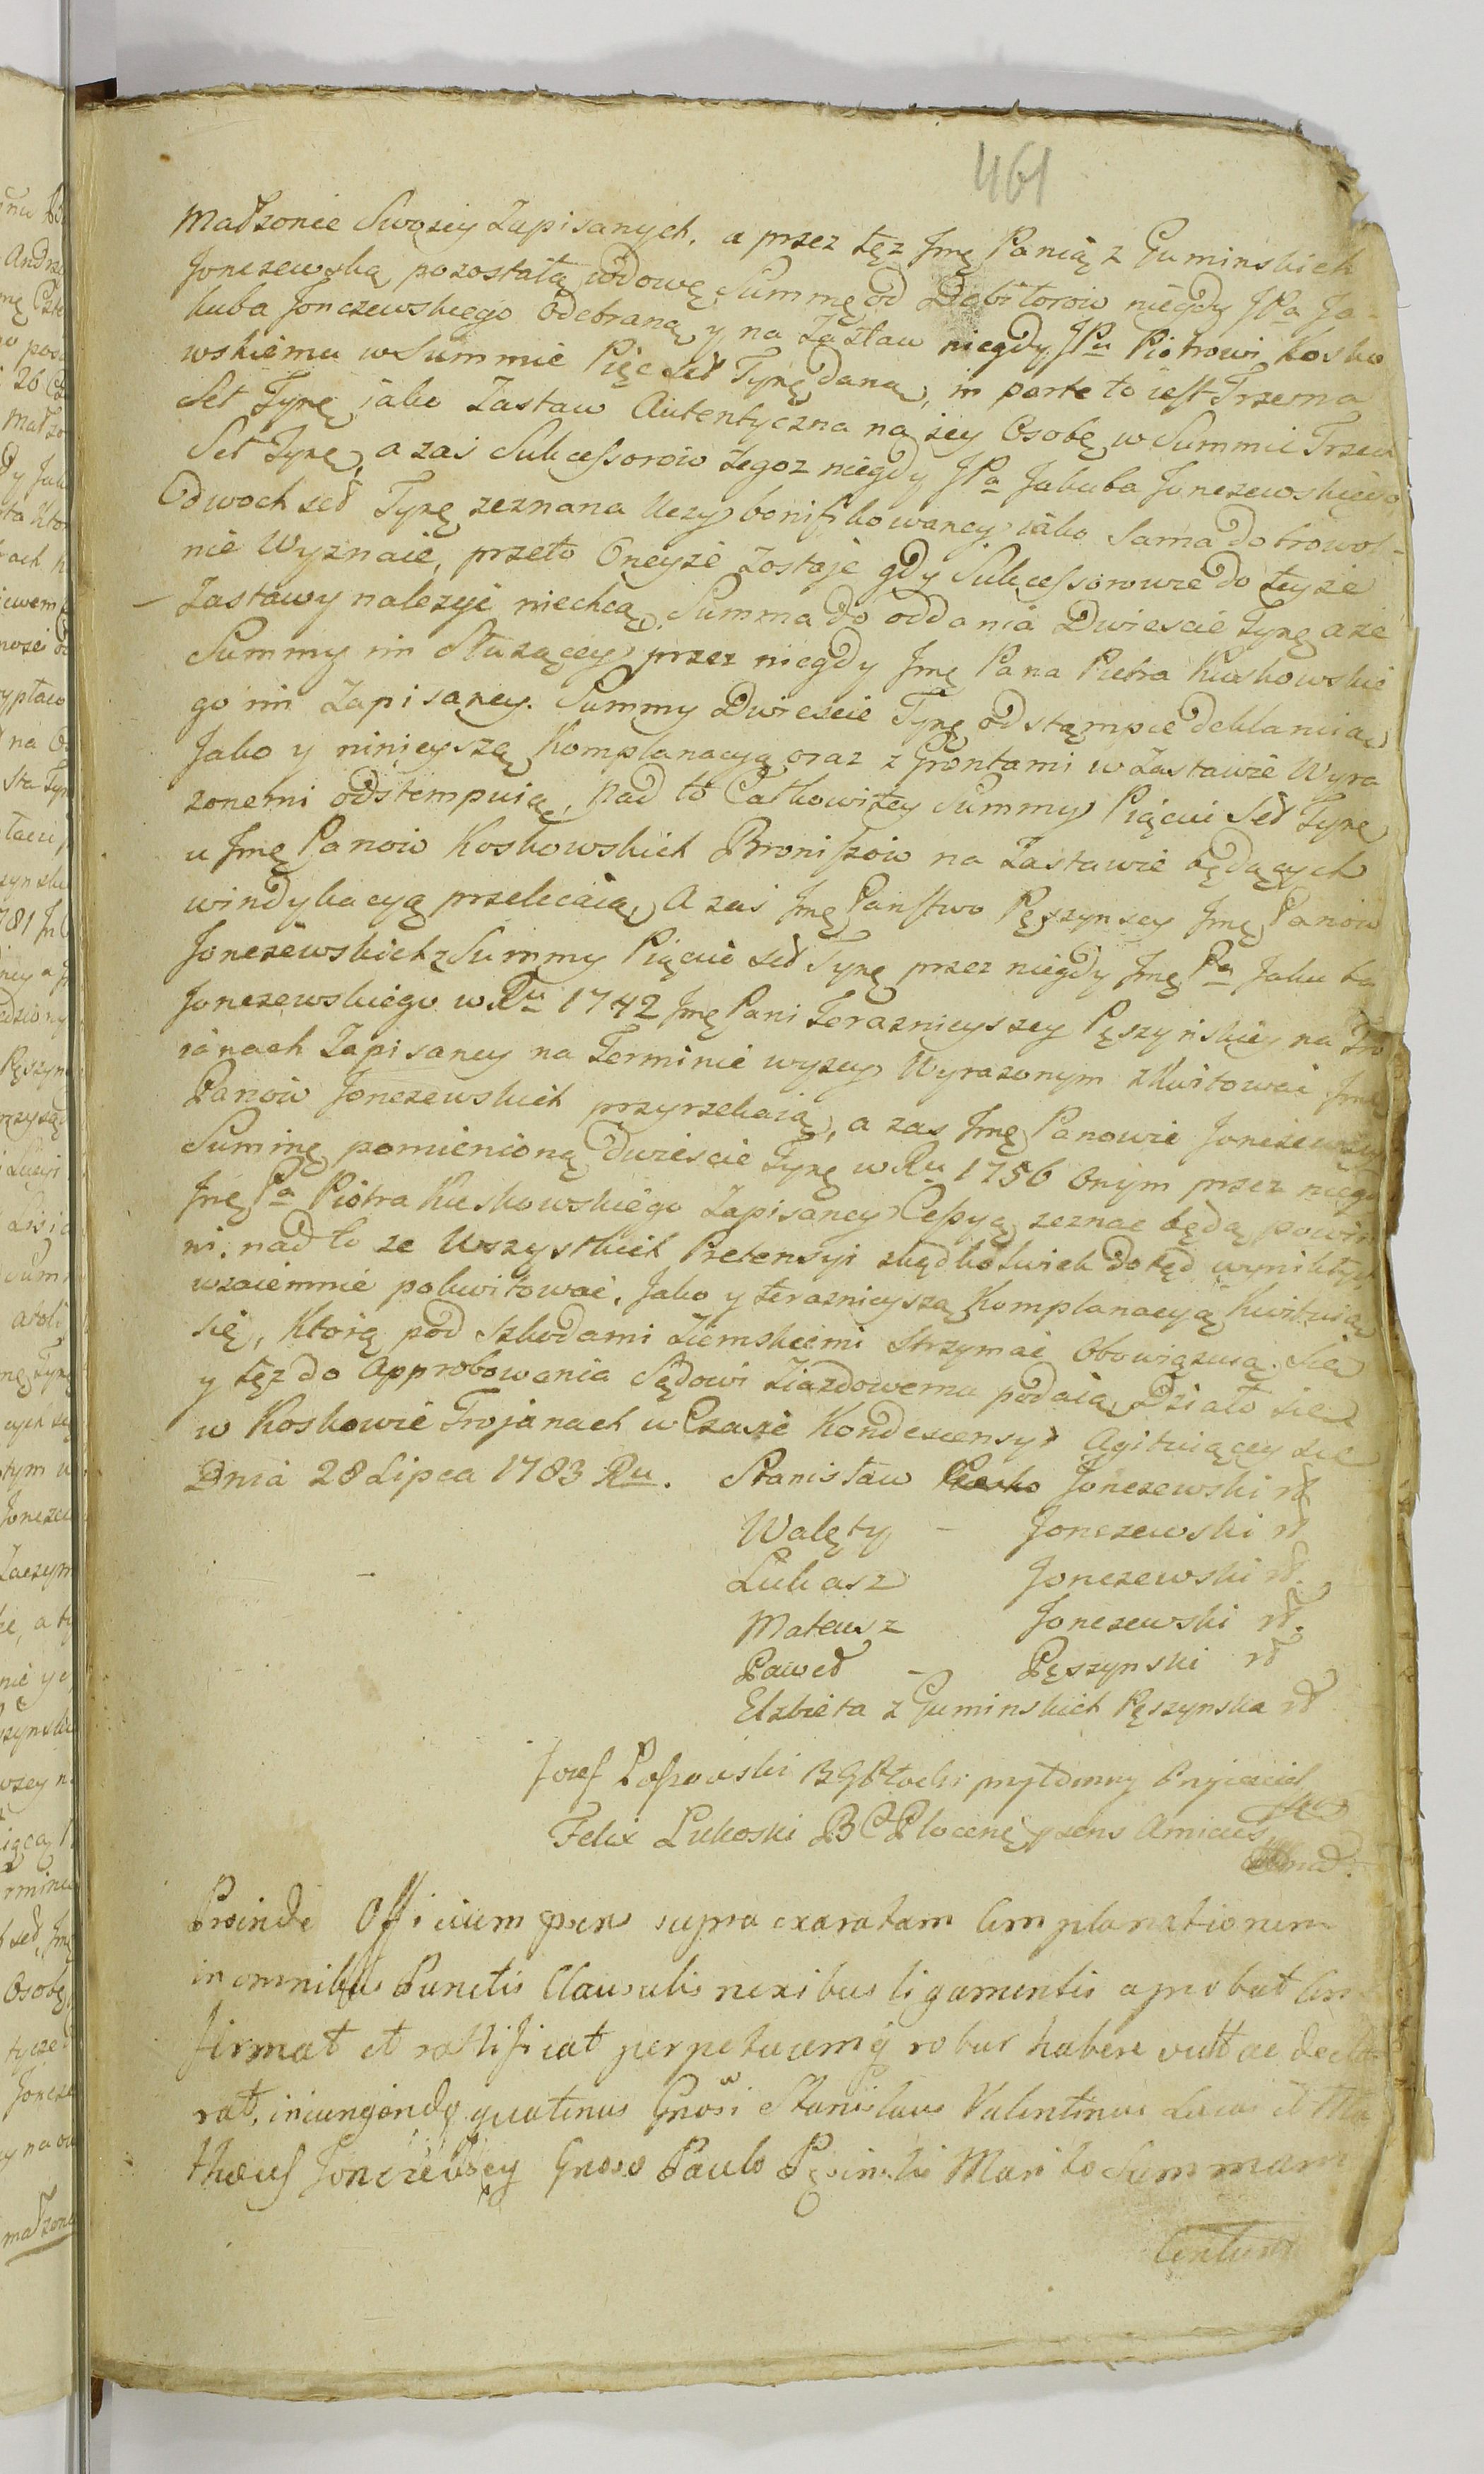 461
Małzonce Swoiey Zapisanych, a przez tęz Jmę Panią z Guminskich
Jonczewską pozostałą wdowę Summę od Debitorow niegdy JPa Ja-
kuba Jonczewskiego Odebraną y na Zastaw niegdy JPu Piotrowi Kosko
wskiemu w Summie Pięc Set Tynę daną, in parte to iest Trzema
Set Tynę iako Zastaw Autentyczna na iey Osobę w Summie Trzech
Set Tynę, a zas Sukcessorow Tegoz niegdy JPa Jakuba Jonczewskiego
Odwoch set Tynę zeznana Uczy bonifikowaney iako Sama dobrowol-
nie Wyznaie, przeto Oneyze Zostaje gdy Sukcessorowie do teyze
Zastawy nalezyć niechcą, Summa do oddania Dwiescie Tynę a ze
Summy im Słuzącey przez niegdy Jmę Pana Pietra Kuskowskie
go im Zapisaney. Summy Dwiescie Tynę odstąmpic deklaruią
Jako y ninieyszą Komplanacyą oraz z Grontami w Zastawie Wyra
zonemi odstempuią, nad to Całkowitey Summy Piąciu Set Tynę
u Jmę Panow Koskowskich Broniszow na Zastawie będących
windykacyą przelecaią, A zas Jmę Panstwo Pęszynscy Jmę Panow
Jonczewskich z Summy Piąciu set Tynę przez niegdy Jmę Pa Jaku ba
Jonczewskiego w Ru 1742 Jmę Pani Teraznieyszey Pęszyńskiey na Tro
ianach Zapisaney na Terminie wyzey Wyrazonym zKwitować Jmę
Panow Jonczewskich przyrzekaią, a zas Jmę Panowie Jonczewscy
Summę pomienioną dwiescie Tynę w Ru 1756 Onym przez niegdy
Jmę Pa Piotra Kuskowskiego Zapisaney Cessyą zeznac będą powin
ni. nad to ze Wszystkich Pretensyi zkędkolwiek dotęd wynikłych
wzaiemnie pokwitować, Jako y teraznieyszą Komplanacyą Kwituią
się, Ktorą pod szkodami Ziemskiemi strzymać Obowiązuią Się
y tęz do Approbowania Sądowi Ziazdowemu podaią Działo się
w Koskowie Trojanach w Czasie Kondescensyi Agituiącey się
Dnia 28 Lipca 1783 Ru. Stanisław Jonczewski
Walęty - Jonczewski
Lukasz Jonczewski
Mateusz Jonczewski
Paweł - Pęszynski
Elzbieta z Guminskich Pęszynska
Jozef przytomny Przyiaciel
Felix Lukoski B C Plocenę psens Amicus
Proinde Officium psens supra exaratam Complanationem
in omnibus Punctis Clausulis nexibus ligamentis aprobat Con
firmat et rattificat perpetuumq robur habere vult ac decla
rat, iniungendo quatenus Gnosi Stanislaus Valentinus Lucas et Ma
thaeus Jonczewscy Gnoso Paulo Pęszinski Marito Summam
Centum